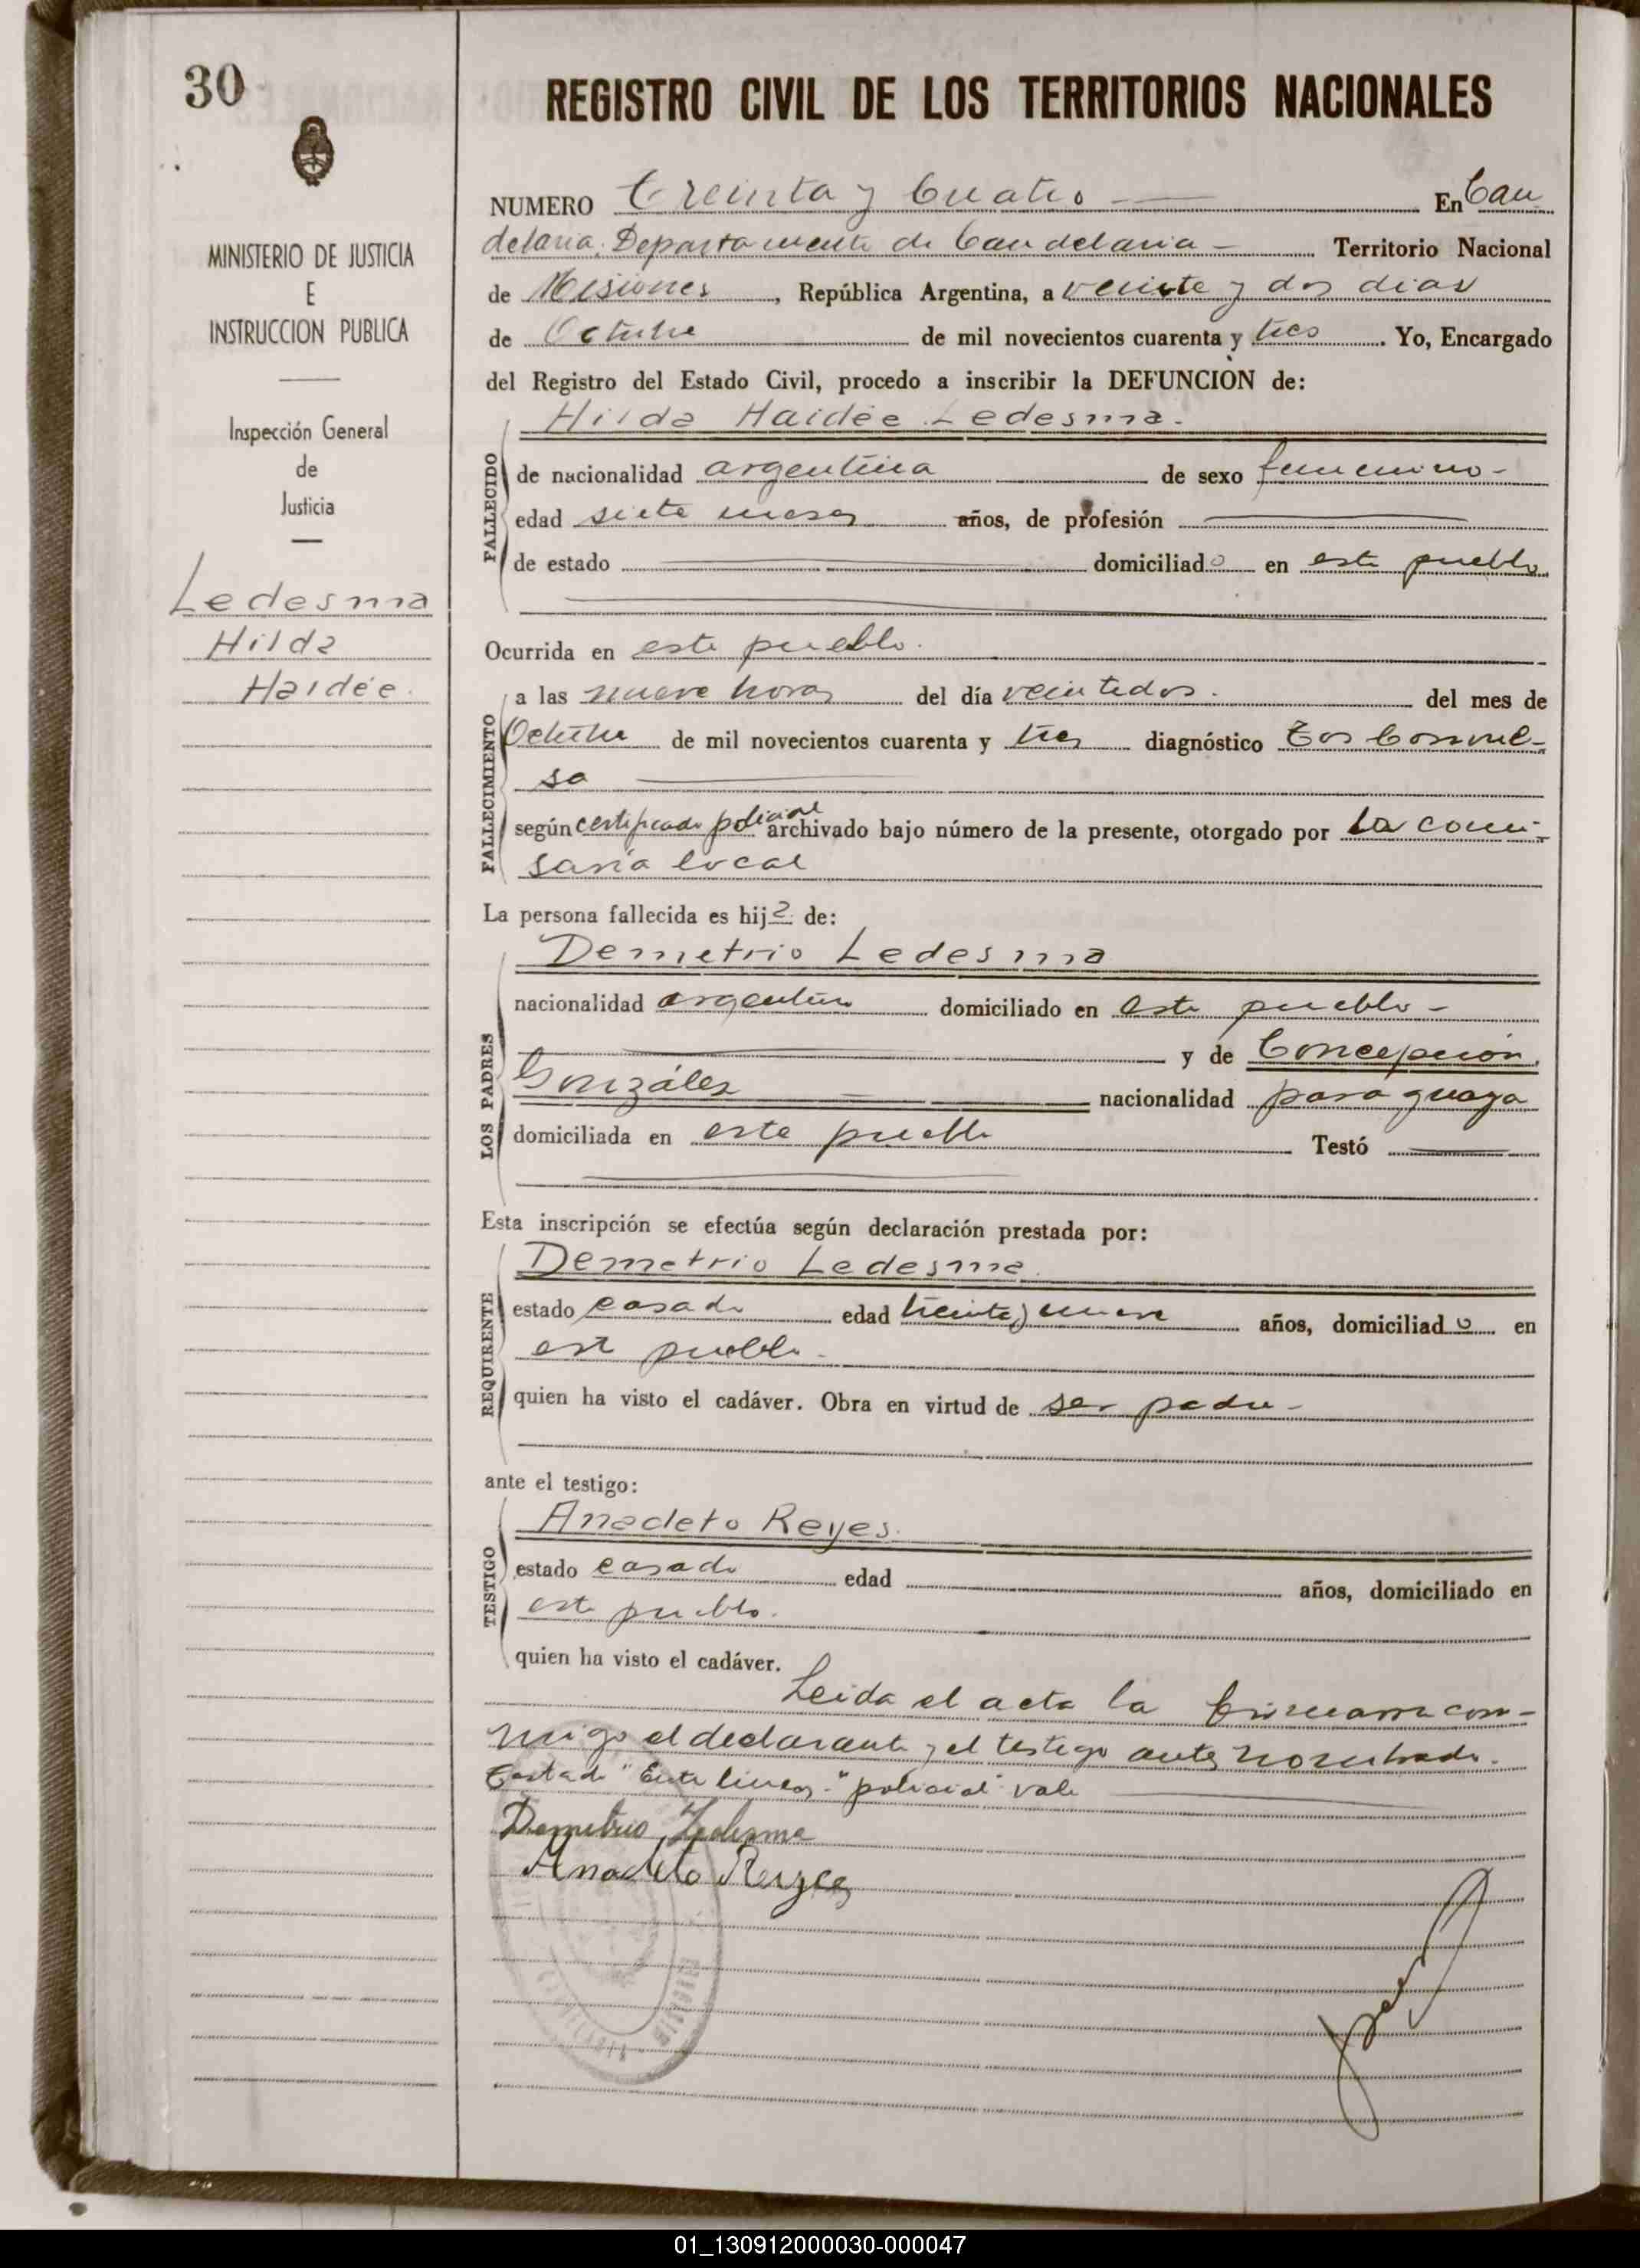 30
REGISTRO CIVIL DE LOS TERRITORIOS NACIONALES
MINISTERIO DE JUSTICIA
E
INSTRUCCION PUBLICA
Inspección General
de
Justicia
Ledesma
Hilda
Haidée.
NUMERO Treinta y Cuatro En Can
delaria. Departamento de Candelaria Territorio Nacional
de Misiones, República Argentina, a veinte y dos dias
de Octubre de mil novecientos cuarenta y tres. Yo, Encargado
del Registro del Estado Civil, procedo a inscribir la DEFUNCION de:
Hilda Haidée Ledesma.
FALLECIDO
de nacionalidad argentina de sexo femenino
edad siete meses años, de profesión
de estado domiciliado en este pueblo
Ocurrida en este pueblo.
FALLECIMIENTO
a las nueve horas del día veintedos. del mes de
Octubre de mil novecientos cuarenta y tres diagnóstico Tos Convul-
sa
según certificado policial archivado bajo número de la presente, otorgado por la comi-
saria local
La persona fallecida es hija de:
LOS PADRES
Demetrio Ledesma
nacionalidad argentino domiciliado en este pueblo
y de Concepción
González nacionalidad paraguaya
domiciliada en este pueblo Testó
Esta inscripción se efectúa según declaración prestada por:
REQUIRENTE
Demetrio Ledesma
estado casado edad treinta y nueve años, domiciliado en
este pueblo.
quien ha visto el cadáver. Obra en virtud de ser padre
ante el testigo:
TESTIGO
Anacleto Reyes.
estado casado edad años, domiciliado en
este pueblo.
quien ha visto el cadáver.
Leida el acta la firmam con-
migo el declarante y el testigo antes nombrado.
Testado "Entre lineas - "policial" vale
Demetrio Ledesma
Anacleto Reyes
01_130912000030-000047